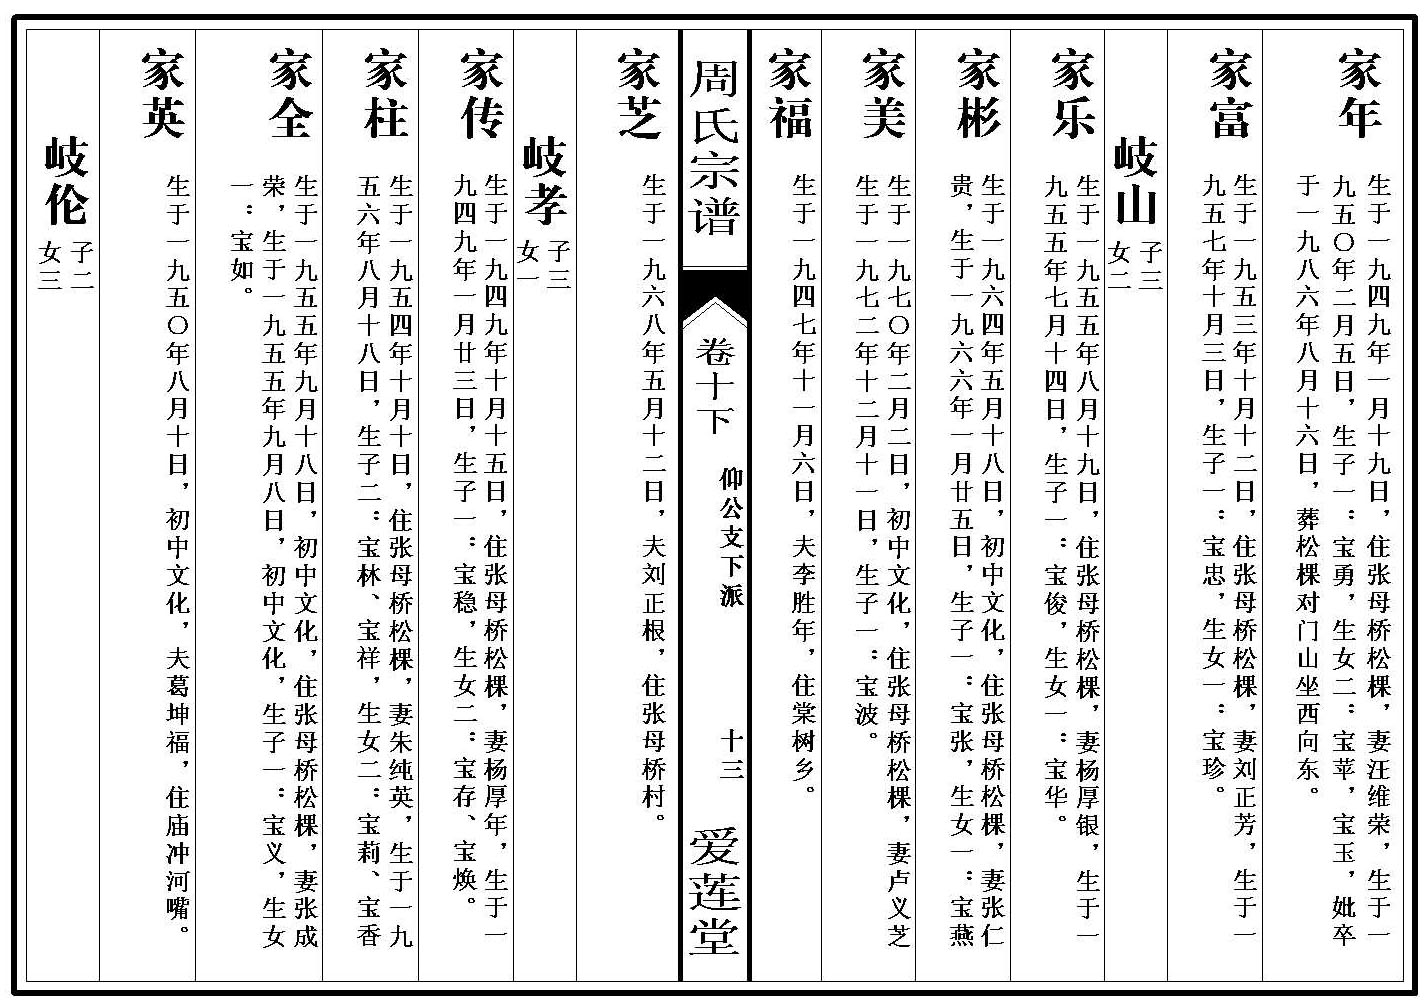 家年
生于一九四九年一月十九日，住张母桥松棵，妻汪维荣，生于一
九五〇年二月五日，生子一：宝勇，生女二：宝苹，宝玉，妣卒
于一九八六年八月十六日，葬松棵对门山坐西向东。
家富
生于一九五三年十月十二日，住张母桥松棵，妻刘正芳，生于一
九五七年十月三日，生子一：宝忠，生女一：宝珍。
岐山
子三
女二
家乐
生于一九五五年八月十九日，住张母桥松棵，妻杨厚银，生于一
九五五年七月十四日，生子一：宝俊，生女一：宝华。
家彬
生于一九六四年五月十八日，初中文化，住张母桥松棵，妻张仁
贵，生于一九六六年一月廿五日，生子一：宝张，生女一：宝燕
家美
生于一九七〇年二月二日，初中文化，住张母桥松棵，妻卢义芝
生于一九七二年十二月十一日，生子一：宝波。
家福
生于一九四七年十一月六日，夫李胜年，住棠树乡。
周氏宗谱
卷十下
仰公支下派
十三
爱莲堂
家芝
生于一九六八年五月十二日，夫刘正根，住张母桥村。
岐孝
子三
女一
家传
生于一九四九年十月十五日，住张母桥松棵，妻杨厚年，生于一
九四九年一月廿三日，生子一：宝稳，生女二：宝存、宝焕。
家柱
生于一九五四年十月十日，住张母桥松棵，妻朱纯英，生于一九
五六年八月十八日，生子二：宝林、宝祥，生女二：宝莉、宝香
家全
生于一九五五年九月十八日，初中文化，住张母桥松棵，妻张成
荣，生于一九五五年九月八日，初中文化，生子一：宝义，生女
一：宝如。
家英
生于一九五〇年八月十日，初中文化，夫葛坤福，住庙冲河嘴。
岐伦
子二
女三